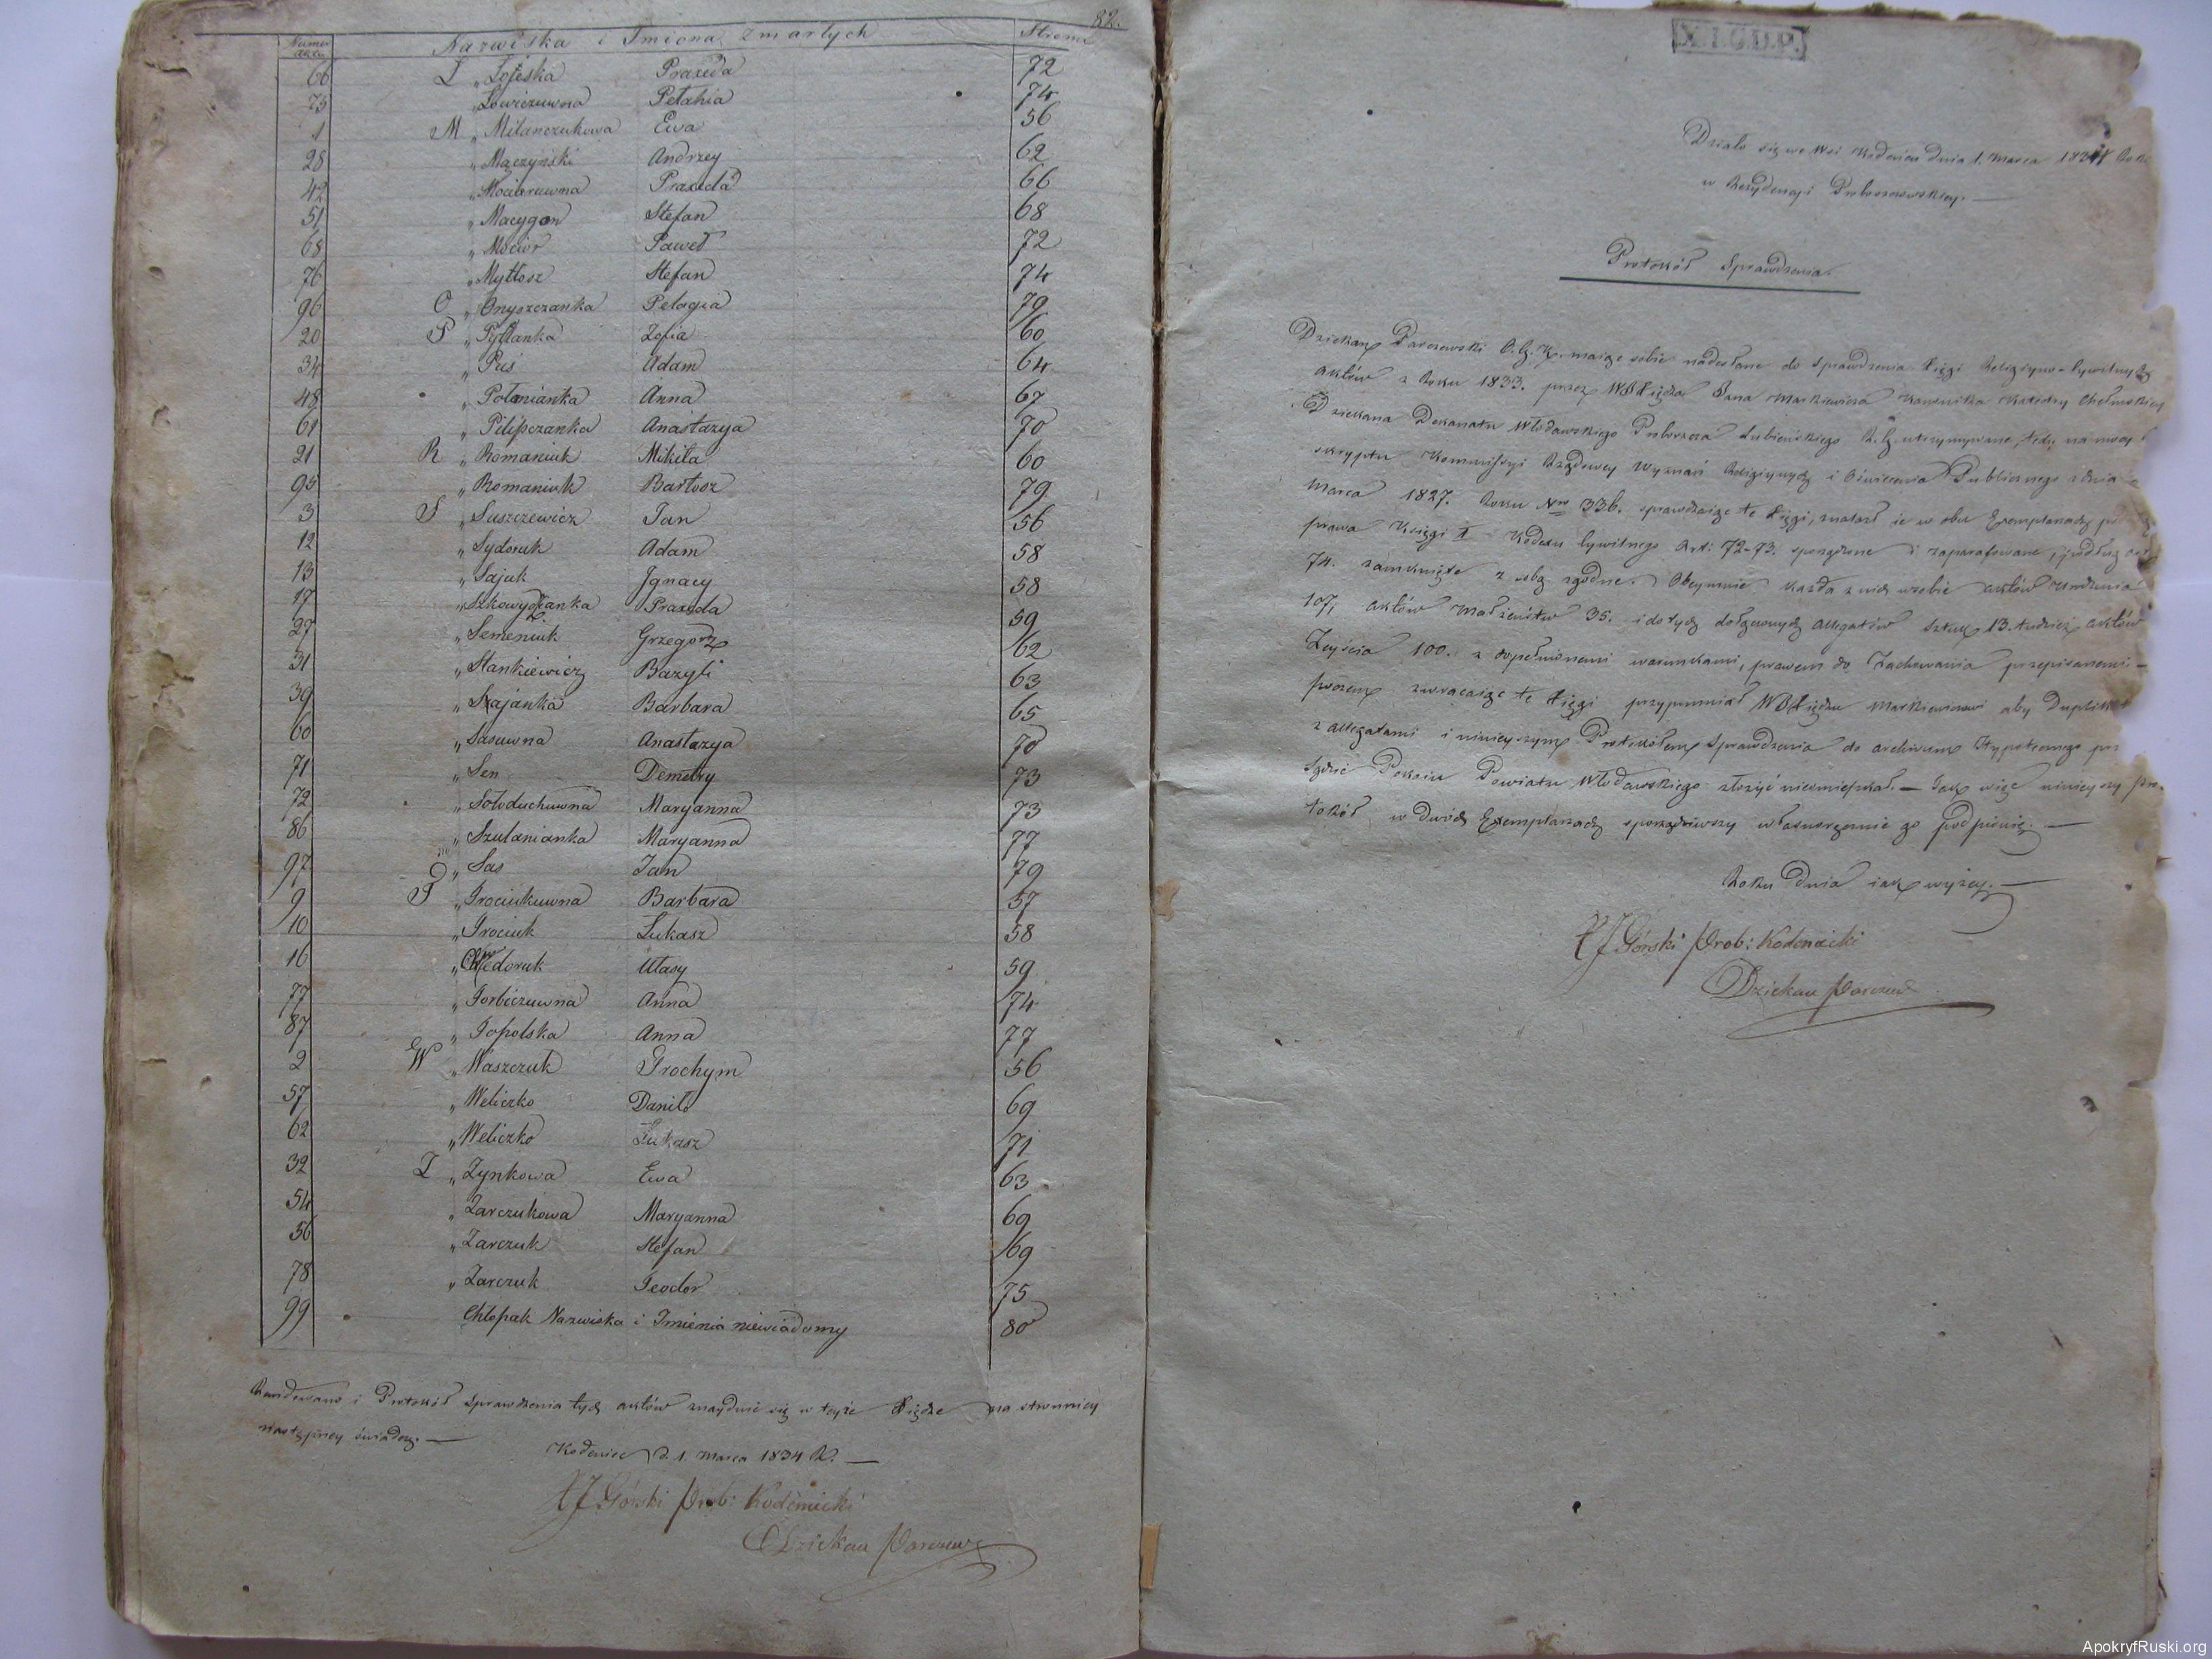 82.
Numer aktu Nazwiska i Imiona zmarłych Strona
66 L „ Praxeda 72
75 „ Petahia 74
1 M „ Milanczukowa Ewa 56
28 „ Mączyński Andrzey 62
42 „ Praxeda 66
51 „ Macygon Stefan 68
68 „ Mociór Paweł 72
76 „ Mytłosz Stefan 74
96 O „ Onyszczanka Pelagia 79
20 P „ Zofia 60
34 „ Puś Adam 64
48 „ Połanianka Anna 67
61 „ Pilipczanka Anastazya 70
21 R „ Romaniuk Mikita 60
95 „ Romaniuk Bartosz 79
3 S „ Suszczewicz Jan 56
12 „ Sydoruk Adam 58
13 „ Sajuk Jgnacy 58
17 „ Praxeda 59
27 „ Semeniuk Grzegorz 62
31 „ Stankiewicz Bazyli 63
39 „ Szajanka Barbara 65
60 „ Sasuwna Anastazya 70
71 „ Sen Demetry 73
72 „ Sołoduchuwna Maryanna 73
86 „ Szulanianka Maryanna 77
97 „ Sas Jan 79
9 T „ Trociukuwna Barbara 57
10 „ Trociuk Łukasz 58
16 „ 59
77 „ Torbiczuwna Anna 74
87 „ Topolska Anna 77
2 W „ Waszczuk Trochym 56
57 „ Weliczko Daniło 69
62 „ Weliczko Łukasz 71
32 Z „ Zynkowa Ewa 63
54 „ Zarczukowa Maryanna 69
56 „ Zarczuk Stefan 69
78 „ Zarczuk Teodor 75
99 Chłopak Nazwiska i Imienia niewiadomy 80
Rewidowano i Protokół sprawdzenia tych aktów znayduie się w teyże Księdze na stronnicy
następney świadczę. —
Kodeniec d. 1. Marca 1834 R. —
XJ Górski Prob: Kodenicki
Dziekan Parczew
X.I.G.D.P.
Działo się we Wsi Kodeńcu dnia 1. Marca 1834 Roku
w Rezydencyi Proboszczowskiey. —
Protokół Sprawdzenia.
Dziekan Parczewski O. G. K. maiąc sobie nadesłane do sprawdzenia Księgi Religiyno-Cywilnych
aktów z Roku 1833. przez WJX Jana Markiewicza Kanonika Katedry Chełmskiey
Dziekana Dekanatu Włodawskiego Proboszcza Lubieńskiego R. G. utrzymywane, tedy na mocy
skryptu Kommissyi Rządowey Wyznań Religiynych i Oświecenia Publicznego z dnia
Marca 1827. Roku Nro 336. sprawdzaiąc te Księgi, znalazł ie w obu Exemplarzach
prawa Księgi I Kodexu Cywilnego Art: 72-73. sporządzone i zaparafowane, podług
74. zamknięte z sobą zgodne. Obeymuie każda z nich w sobie aktów Urodzenia
107, aktów Małżeństw 35. i do tych dołączonych allegatów sztuk 13. tudzież aktów
Zeyścia 100. z dopełnionemi warunkami, prawem do Zachowania przepisanemi —
poczem zwracaiąc te Księgi przypomniał Markiewiczowi aby Duplikat
z allegatami i ninieyszym Protokółem sprawdzenia do archiwum Hypotecznego przy
Sądzie Pokoiu Powiatu Włodawskiego złożyć nieomieszkał. — Jak więc ninieyszy Pro-
tokół w dwóch Exemplarzach sporządziwszy własnoręcznie go podpisuię. —
Roku dnia iak wyżey. —
XJ Górski Prob: Kodenicki
Dziekan Parczew
ApokryfRuski.org